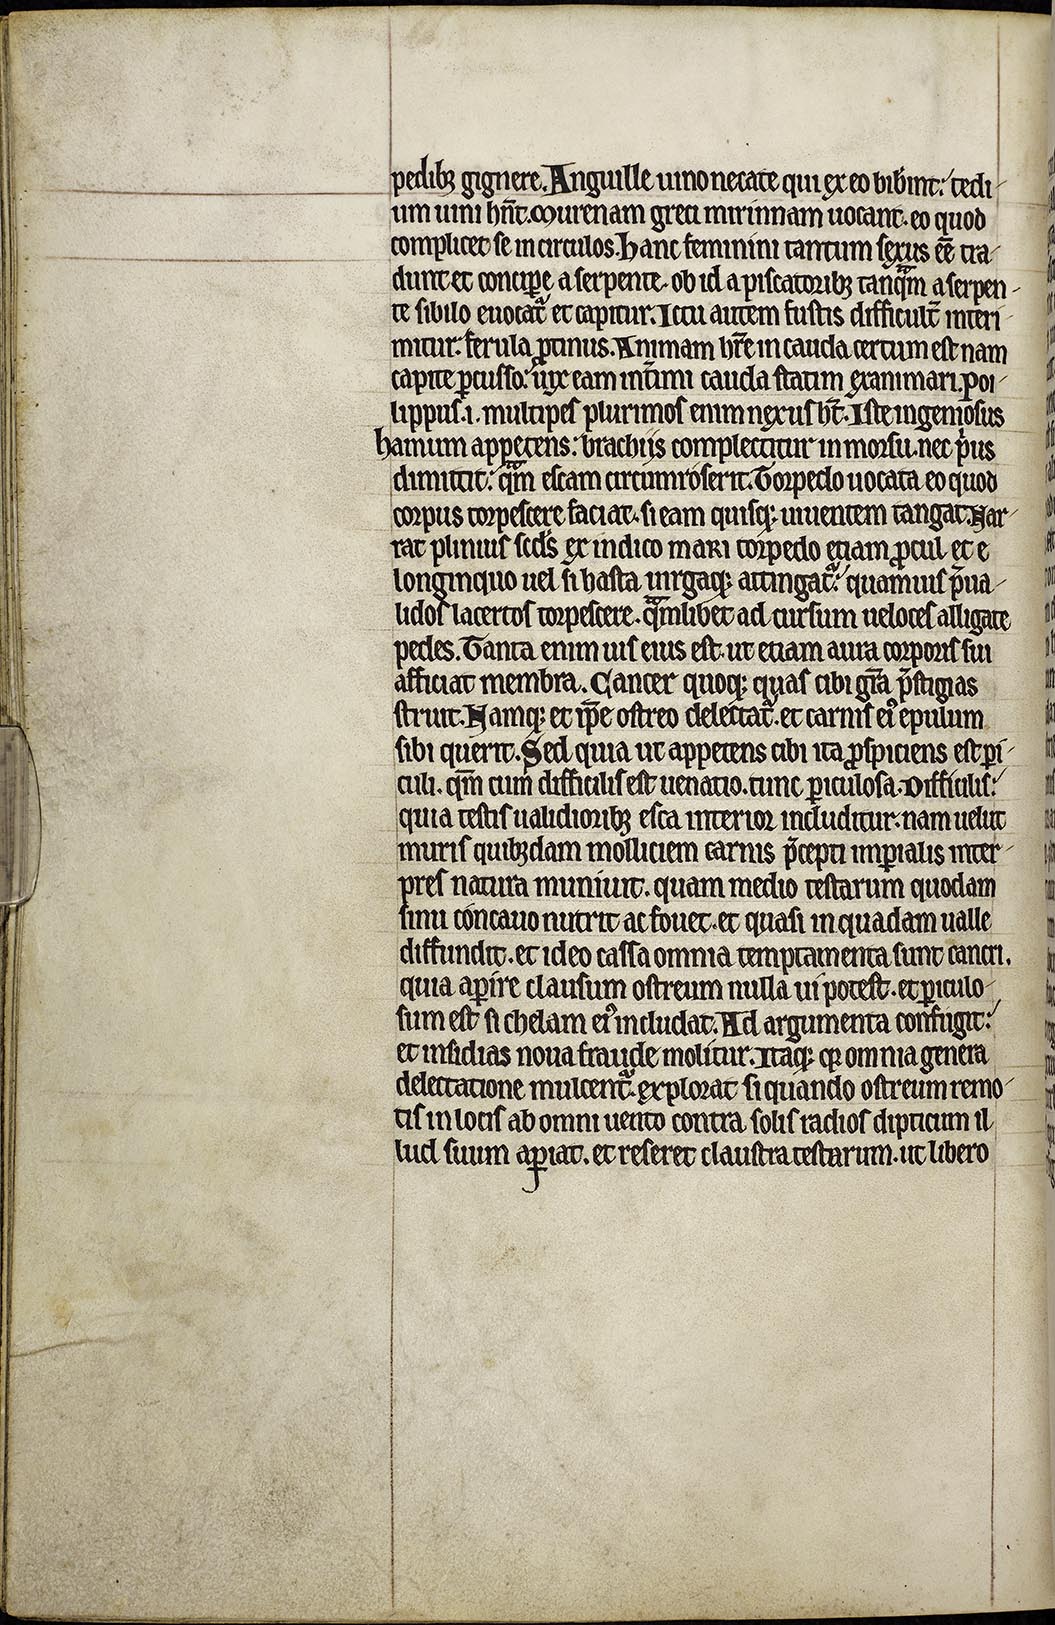 pedibꝫ gignere. Anguille uino necate qui ex eo biberint: tedi-
um uini hn̄t. Murenam greci mirinnam uocant. eo quod
complicet se in circulos. hanc feminini tantum sexus ee᷒ tra-
dunt et concipe̲ a serpente. ob id a piscatoribꝫ tanqᷓm a serpen-
te sibilo euocatᷓ et capitur. Ictu autem fustis difficult̄ interi-
mitur: ferula ꝓtinus. Animam hr̄e in cauda certum est nam
capite ꝑcusso: uix eam int̄imi cauda statim exanimari. Poi-
lippus .i. multipes plurimos enim nexus ht̄. Iste ingeniosus
hamum appetens: brachiis complectitur in morsu. nec pͥus
dimittit: qᷓm escam circumroserit. Torpedo uocata eo quod
corpus torpescere faciat. si eam quisqꝫ uiuentem tangat. Nar-
rat plinius scd̄s ex indico mari torpedo etiam ꝓcul et e
longinquo uel si hasta uirgaqꝫ attingatᷓ: quamuis p̄ua-
lidos lacertos torpescere. qᷓmlibet ad cursum ueloces alligate
pedes. Tanta enim uis eius est. ut etiam aura corporis sui
afficiat membra. Cancer quoqꝫ quas cibi gr̄a p̄stigias
struit. Namqꝫ et ip̄e ostreo delectatᷓ. et carnis ei᷒ epulum
sibi querit. Sed quia ut appetens cibi ita ꝓspiciens est ꝑi-
culi. qm̄ cum difficilis est uenatio. tunc ꝑiculosa. Difficilis:
quia testis ualidioribꝫ esca interior includitur. nam uelut
muris quibꝫdam molliciem carnis p̄cepti imꝑialis inter-
pres natura muniuit. quam medio testarum quodam
sinu concauo nutrit ac fouet. et quasi in quadam ualle
diffundit. et ideo cassa omnia temptamenta sunt cancri.
quia aꝑire clausum ostreum nulla ui potest. et ꝑiculo-
sum est si chelam ei᷒ includat. Ad argumenta confugit:
et insidias noua fraude molitur. Itaqꝫ qꝛ omnia genera
delectatione mulcentᷓ. explorat si quando ostreum remo-
tis in locis ab omni uento contra solis radios dipticum il-
lud suum aꝑiat. et reseret claustra testarum. ut libero